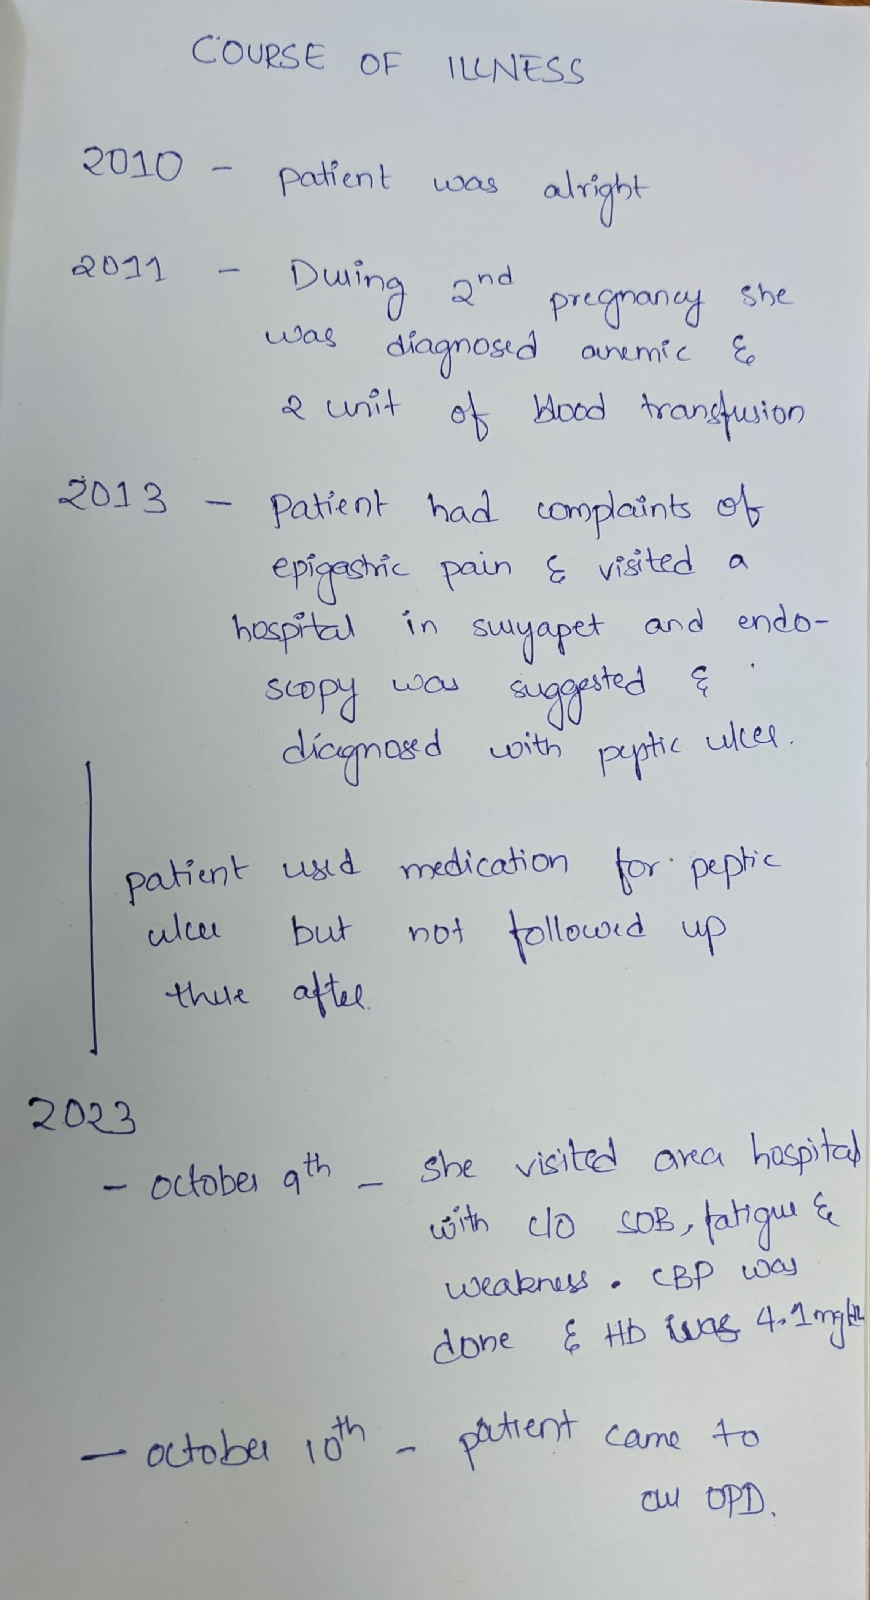 COURSE OF ILLNESS
2010 - patient was alright
2011 - During 2nd pregnancy she
was diagnosed anemic &
2 unit of blood transfusion
2013 - Patient had complaints of
epigastric pain & visited a
hospital in suryapet and endo-
scopy was suggested &
diagnosed with peptic ulcer.
patient used medication for peptic
ulcer but not followed up
there after.
2023
- october 9th - she visited area hospital
with c/o SOB, fatigue &
weakness. CBP was
done & Hb was 4.1mg/dL
- october 10th - patient came to
our OPD.